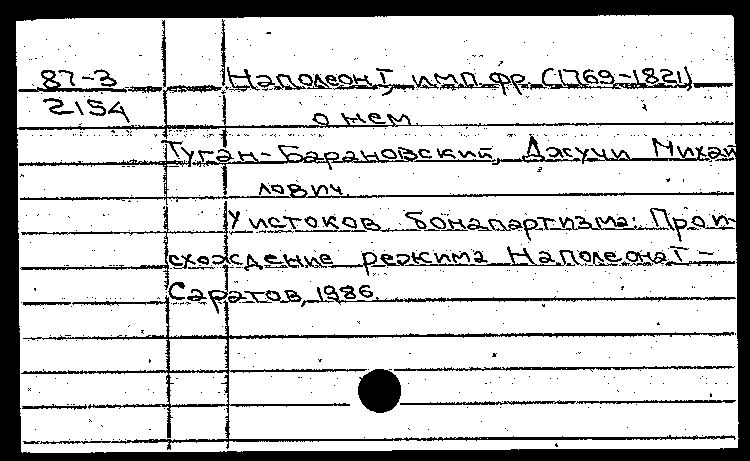 87-3 Наполеон I, имп. фр. (1769-1821)
2154 о нем
Туган-Барановский, Джучи Михай
лович.
У истоков бонапартизма: Прои-
схождение режима Наполеона I –
Саратов, 1986.